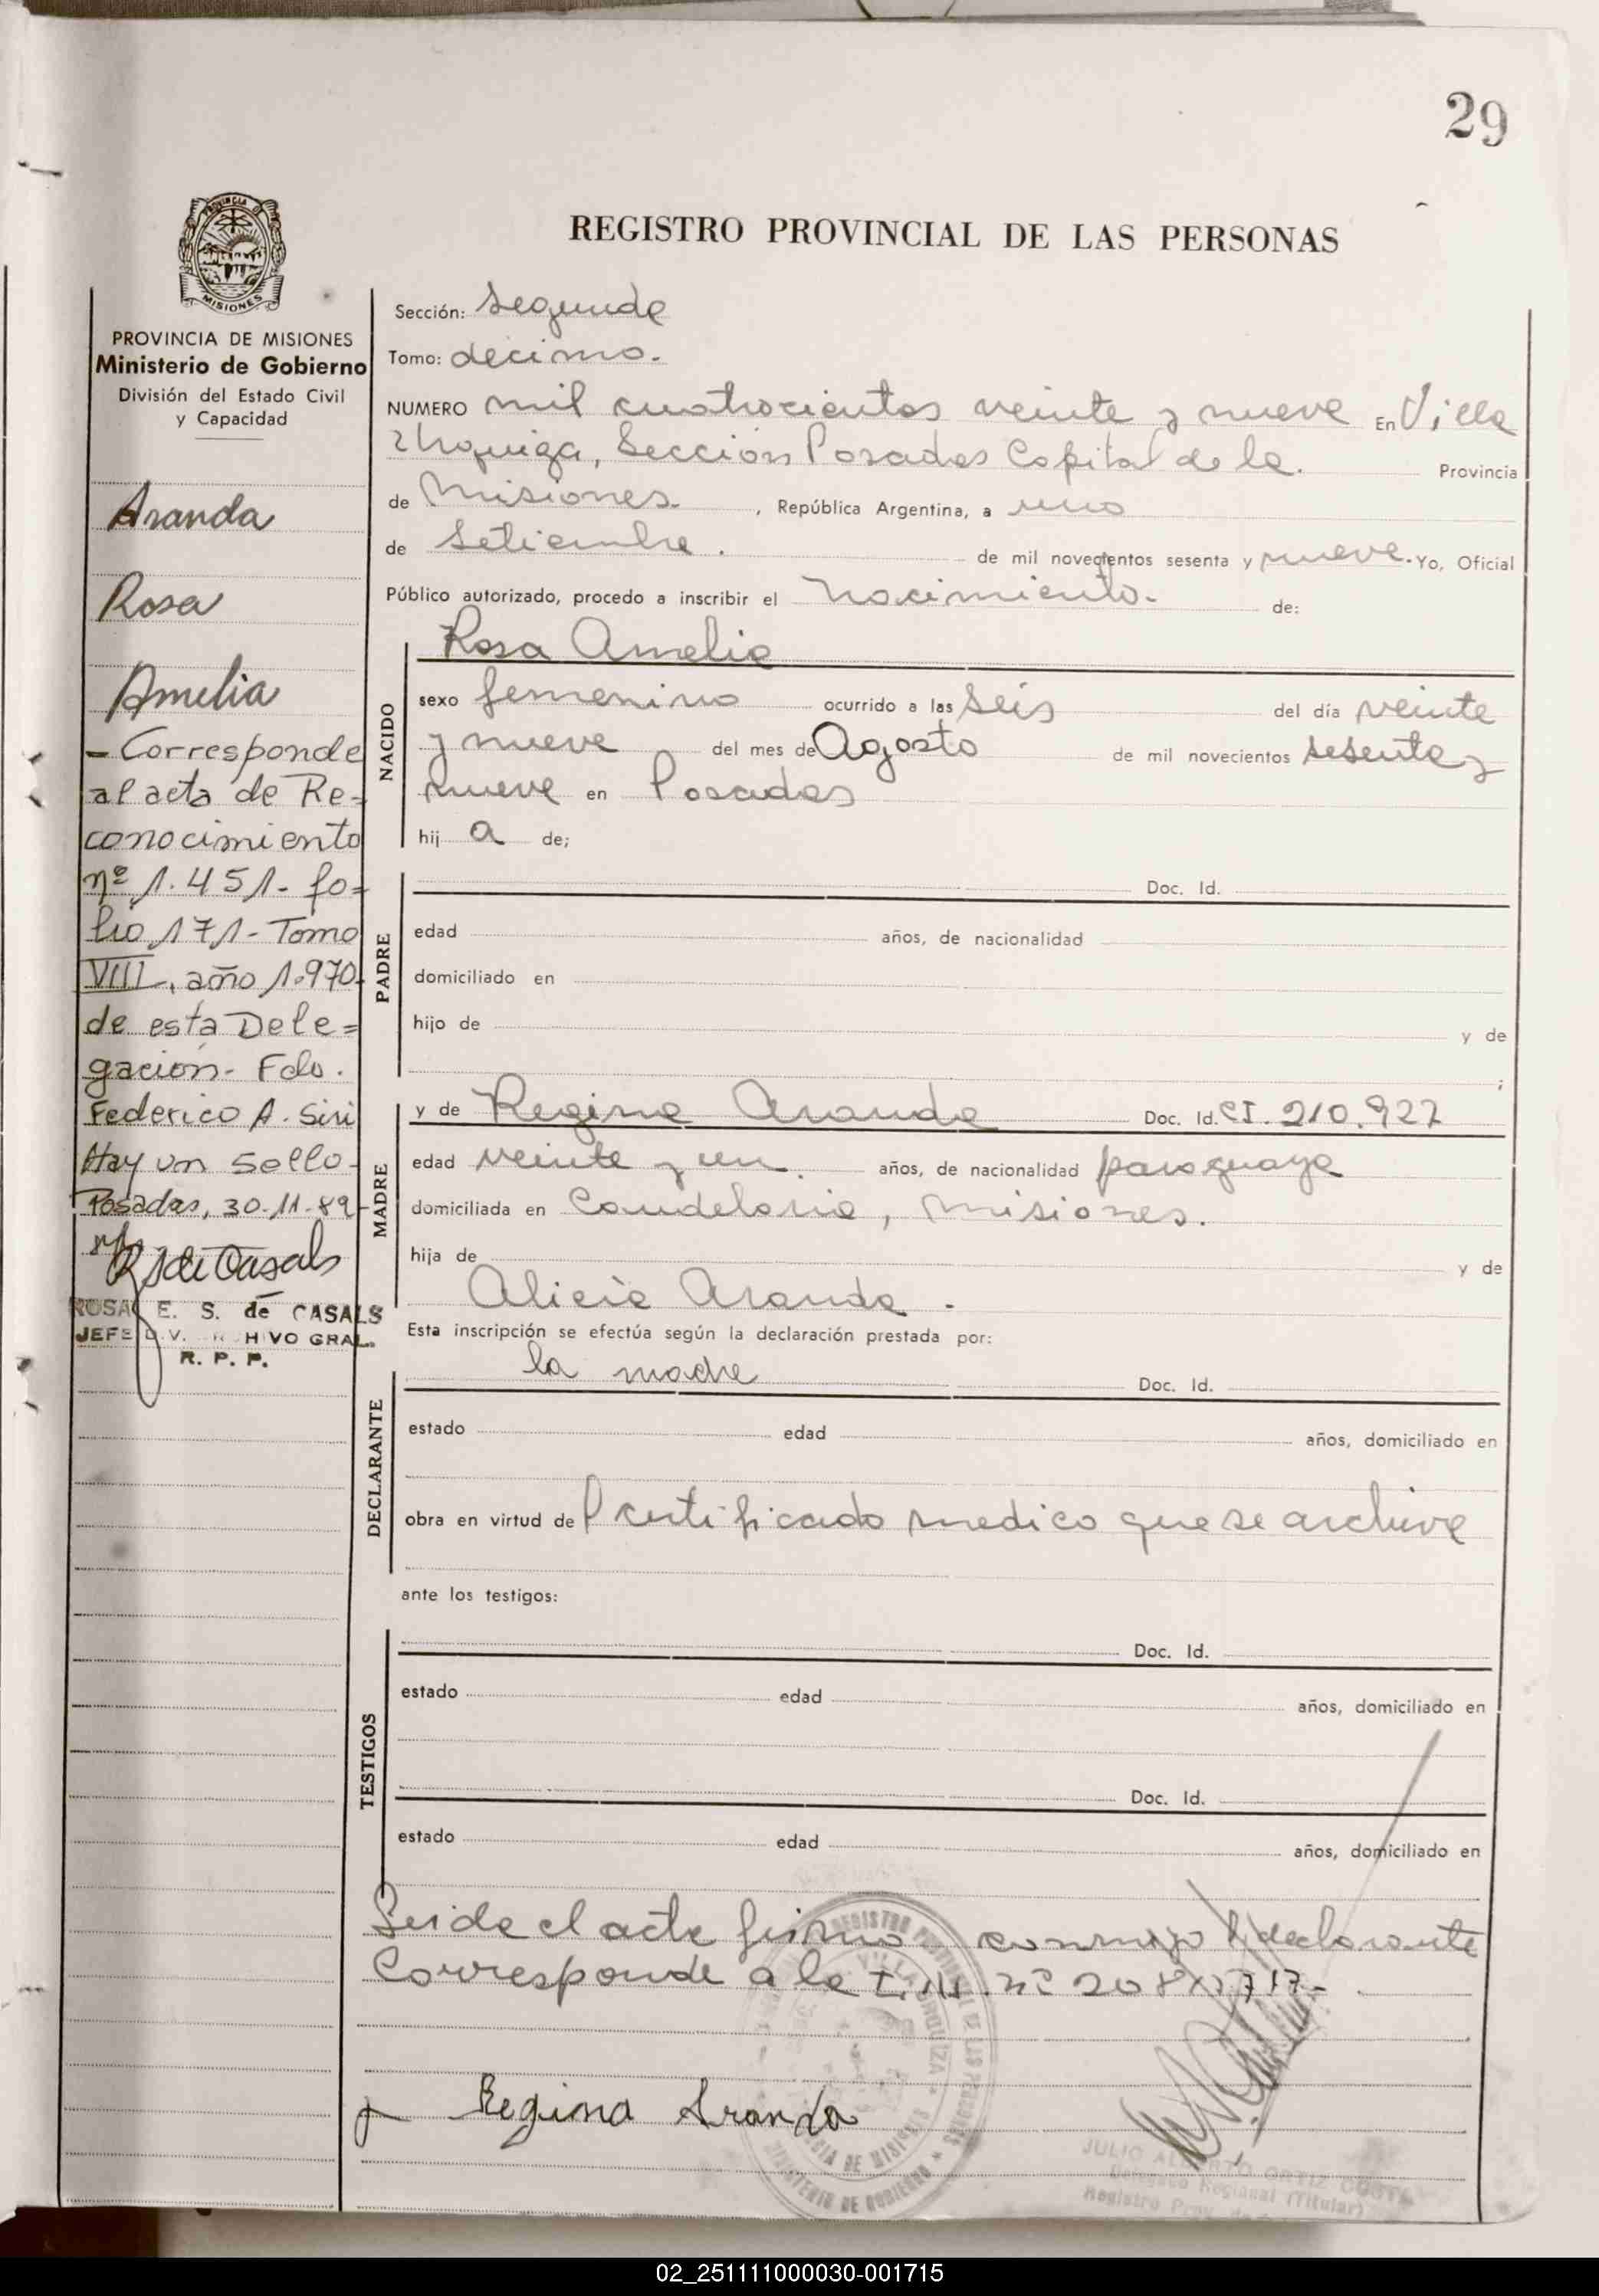 29
REGISTRO PROVINCIAL DE LAS PERSONAS
PROVINCIA DE MISIONES
Ministerio de Gobierno
División del Estado Civil
y Capacidad
Aranda
Rosa
Amelia
- Corresponde
al acta de Re=
conocimiento
nº 1.451- fo=
lio 171- Tomo
VIII, año 1.970-
de esta Dele=
gación- Fdo.
Federico A. Siri
Hay un sello-
Posadas, 30-11-89-
ROSA E. S. de CASALS
JEFE DIV. GRAL.
R. P. P.
Sección: Segunda
Tomo: decimo.
NUMERO mil cuatrocientos veinte y nueve En Villa
Urquiza, Sección Posadas Capital de la. Provincia
de Misiones. , República Argentina, a uno
de Setiembre. de mil novecientos sesenta y nueve. Yo, Oficial
Público autorizado, procedo a inscribir el Nacimiento. de:
NACIDO
Rosa Amelia
sexo femenino ocurrido a las seis del día veinte
y nueve del mes de Agosto de mil novecientos sesenta y
nueve en Posadas
hij a de;
PADRE
Doc. Id.
edad años, de nacionalidad
domiciliado en
hijo de y de
;
MADRE
y de Regina Aranda Doc. Id. CI. 210.927
edad veinte y un años, de nacionalidad paraguaya
domiciliada en Candelaria, Misiones.
hija de y de
Alicia Aranda.
Esta inscripción se efectúa según la declaración prestada por:
DECLARANTE
la madre Doc. Id.
estado edad años, domiciliado en
obra en virtud de certificado medico que se archiva
ante los testigos:
TESTIGOS
Doc. Id.
estado edad años, domiciliado en
Doc. Id.
estado edad años, domiciliado en
Leida el acta firma conmigo declarante
Corresponde a la nº
Regina Aranda
JULIO ALBERTO ORTIZ
Delegado Regional (Titular)
Registro Prov. de
02_251111000030-001715